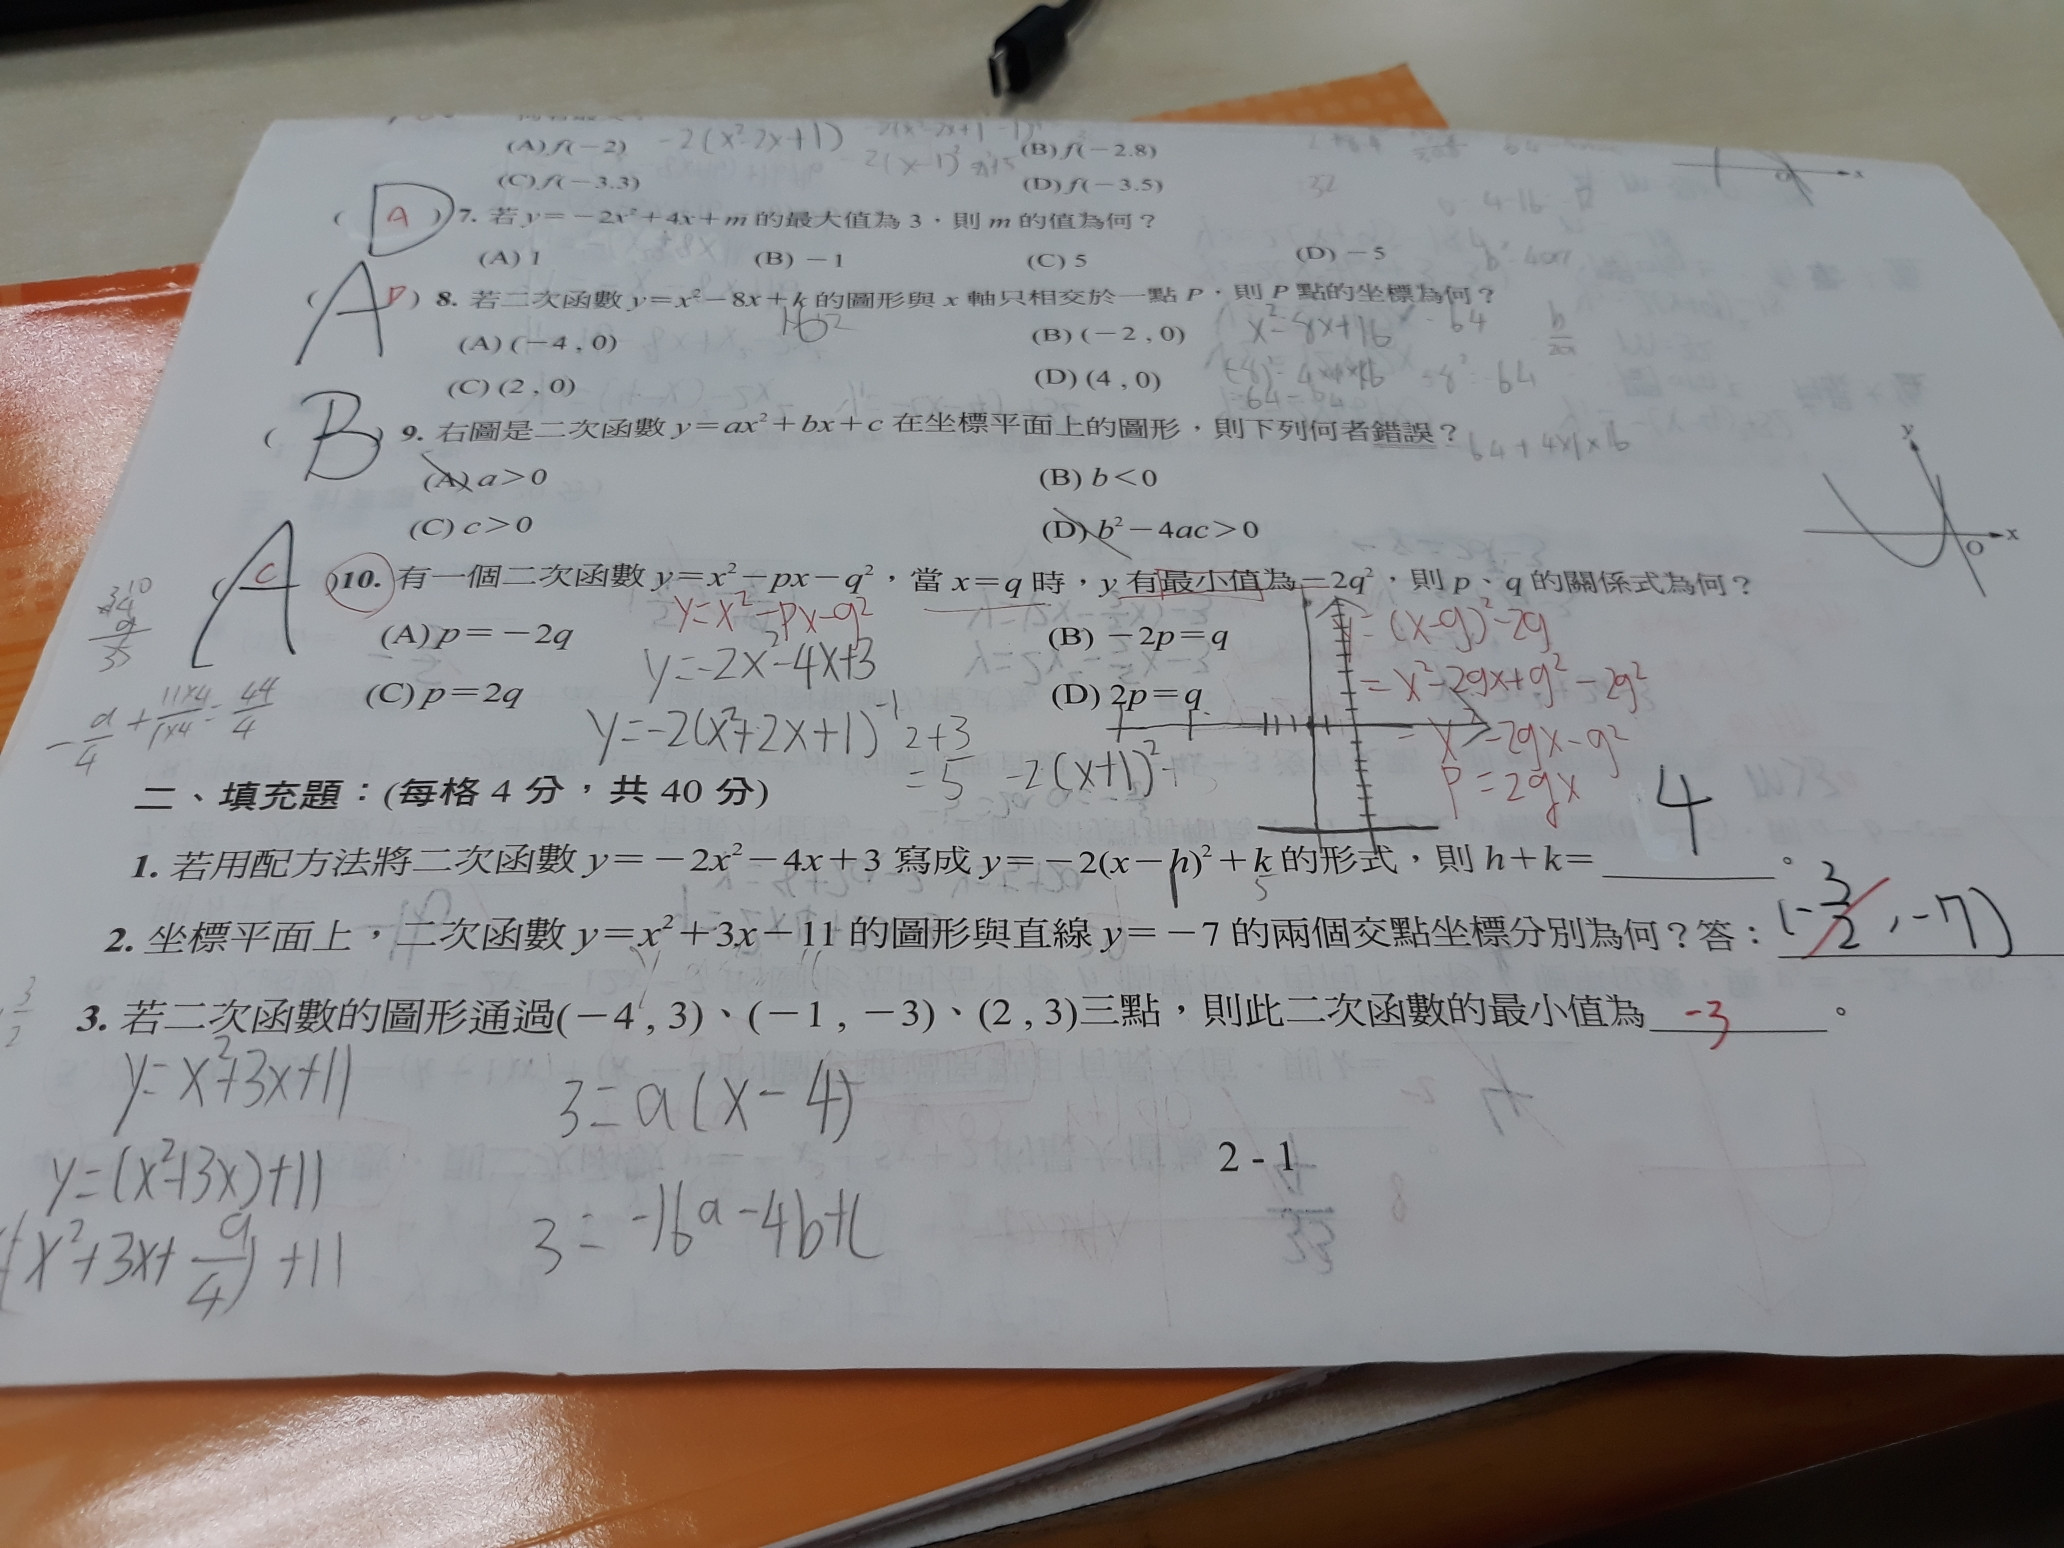 (A) f(−2) −2(x²-2x+1) (B) f(−2.8)
(C) f(−3.3) (D) f(−3.5)
32
( D A ) 7. 若 y=−2x²+4x+m 的最大值為 3，則 m 的值為何？
(A) 1 (B) −1 (C) 5 (D) −5
( A D ) 8. 若二次函數 y=x²−8x+k 的圖形與 x 軸只相交於一點 P，則 P 點的坐標為何？
(A) (−4 , 0) (B) (−2 , 0) x²-8x+16
(C) (2 , 0) (D) (4 , 0)
=64-64
( B ) 9. 右圖是二次函數 y=ax²+bx+c 在坐標平面上的圖形，則下列何者錯誤？
-64+4x1x16
(A) a>0 (B) b<0
(C) c>0 (D) b²−4ac>0
y
x
O
( A C ) 10. 有一個二次函數 y=x²−px−q²，當 x=q 時，y 有最小值為−2q²，則 p、q 的關係式為何？
y=x²-px-q²
y=(x-q)²-2q
(A) p=−2q (B) −2p=q
y=-2x²-4x+3
=x²-2qx+q²-2q²
(C) p=2q (D) 2p=q
y=-2(x²+2x+1)
2+3
=5
-2(x+1)²+
-2qx-q²
p=2qx
二、填充題：(每格 4 分，共 40 分)
1. 若用配方法將二次函數 y=−2x²−4x+3 寫成 y=−2(x−h)²+k 的形式，則 h+k= 4 。
2. 坐標平面上，二次函數 y=x²+3x−11 的圖形與直線 y=−7 的兩個交點坐標分別為何？答：(-3/2 , -7)
3. 若二次函數的圖形通過(−4 , 3)、(−1 , −3)、(2 , 3)三點，則此二次函數的最小值為 -3 。
y=x²+3x+11
3=a(x-4)
y=(x²+3x)+11
2 - 1
3=-16a-4b+c
(x²+3x+9/4)+11